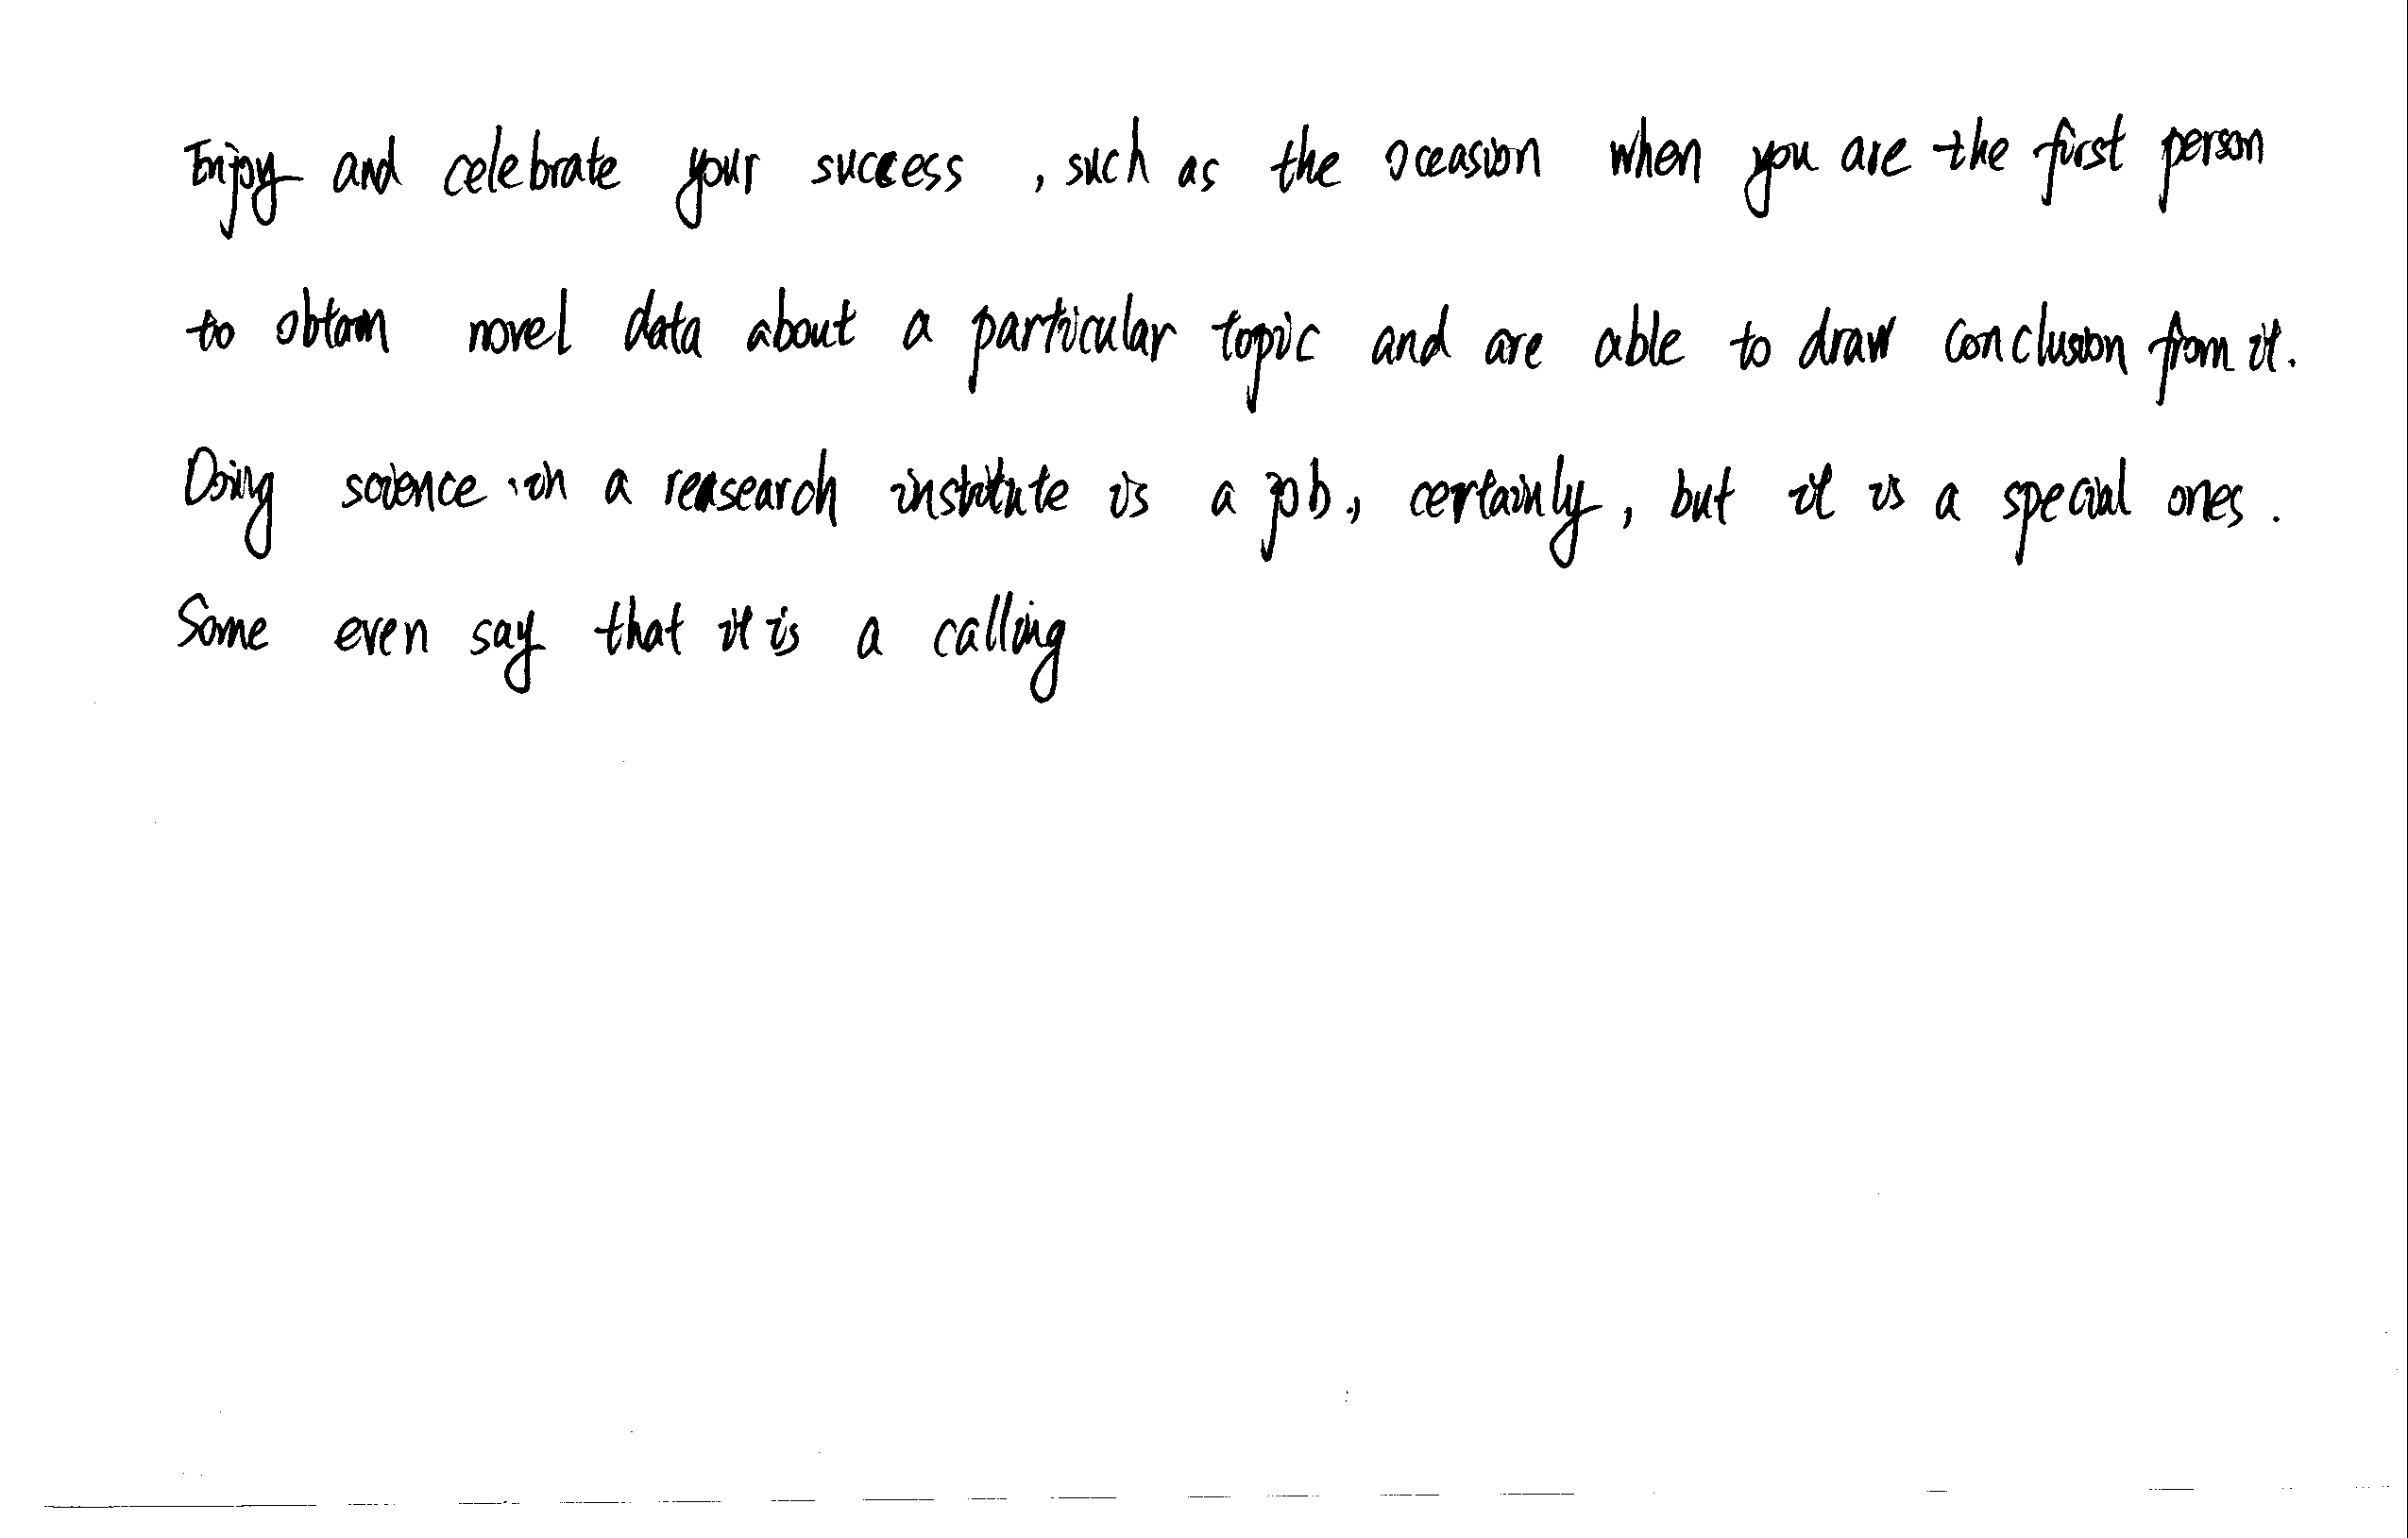 Enjoy and celebrate your success , such as the occasion when you are the first person
to obtain novel data about a particular topic and are able to draw conclusion from it.
Doing science in a reasearch institute is a job., certainly, but it is a special ones.
Some even say that it is a calling